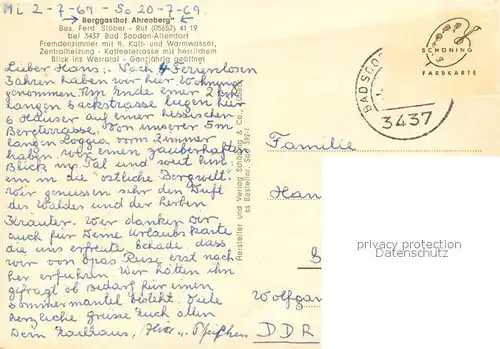 Mi 2-7-69 - So 20-7-69.
→ Berggasthof Ahrenberg ←
Bes. Ferd. Stöber - Ruf (05652) 41 19
bei 3437 Bad Sooden-Allendorf
Fremdenzimmer mit fl. Kalt- und Warmwasser,
Zentralheizung - Kaffeeterrasse mit herrlichem
Blick ins Werratal - Ganzjährig geöffnet
Lieber Hans, - Nach 4 Ferienlosen
Jahren haben wir hier Wohnung
genommen. Am Ende einer 2 km
langen Sackstrasse liegen hier
6 Häuser auf einer hessischen
Bergterrasse. Von unserer 5m
langen Loggia vorm Zimmer
haben wir einen zauberhaften
Blick ins Tal und weit hin
ein in die "östliche Bergwelt".
Wir geniessen sehr den Duft
des Waldes und der herben
Kräuter. Wir danken Dir
auch für Deine Urlaubskarte
die uns erfreute schade, dass
wir von Opas Reise erst nach-
her erfuhren. Wir hätten ihn
gefragt ob Bedarf für einen
Sommermantel besteht. Viele
herzliche Grüsse Euch allen
Dein Karlhans,
Hersteller und Verlag Schöning & Co., Lübeck
Bestellnr.
SCHÖNING
FARBKARTE
BAD SOO
3437
Familie
Han
Wolfgan
DDR
propriety photo of
DaddyStamps.com